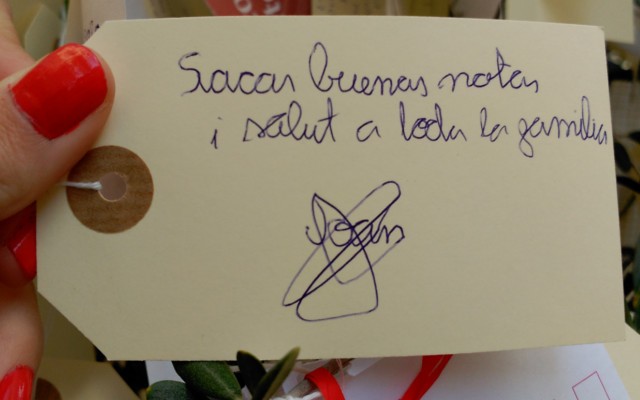 Sacar buenas notas
i salut a toda la familia
Joan